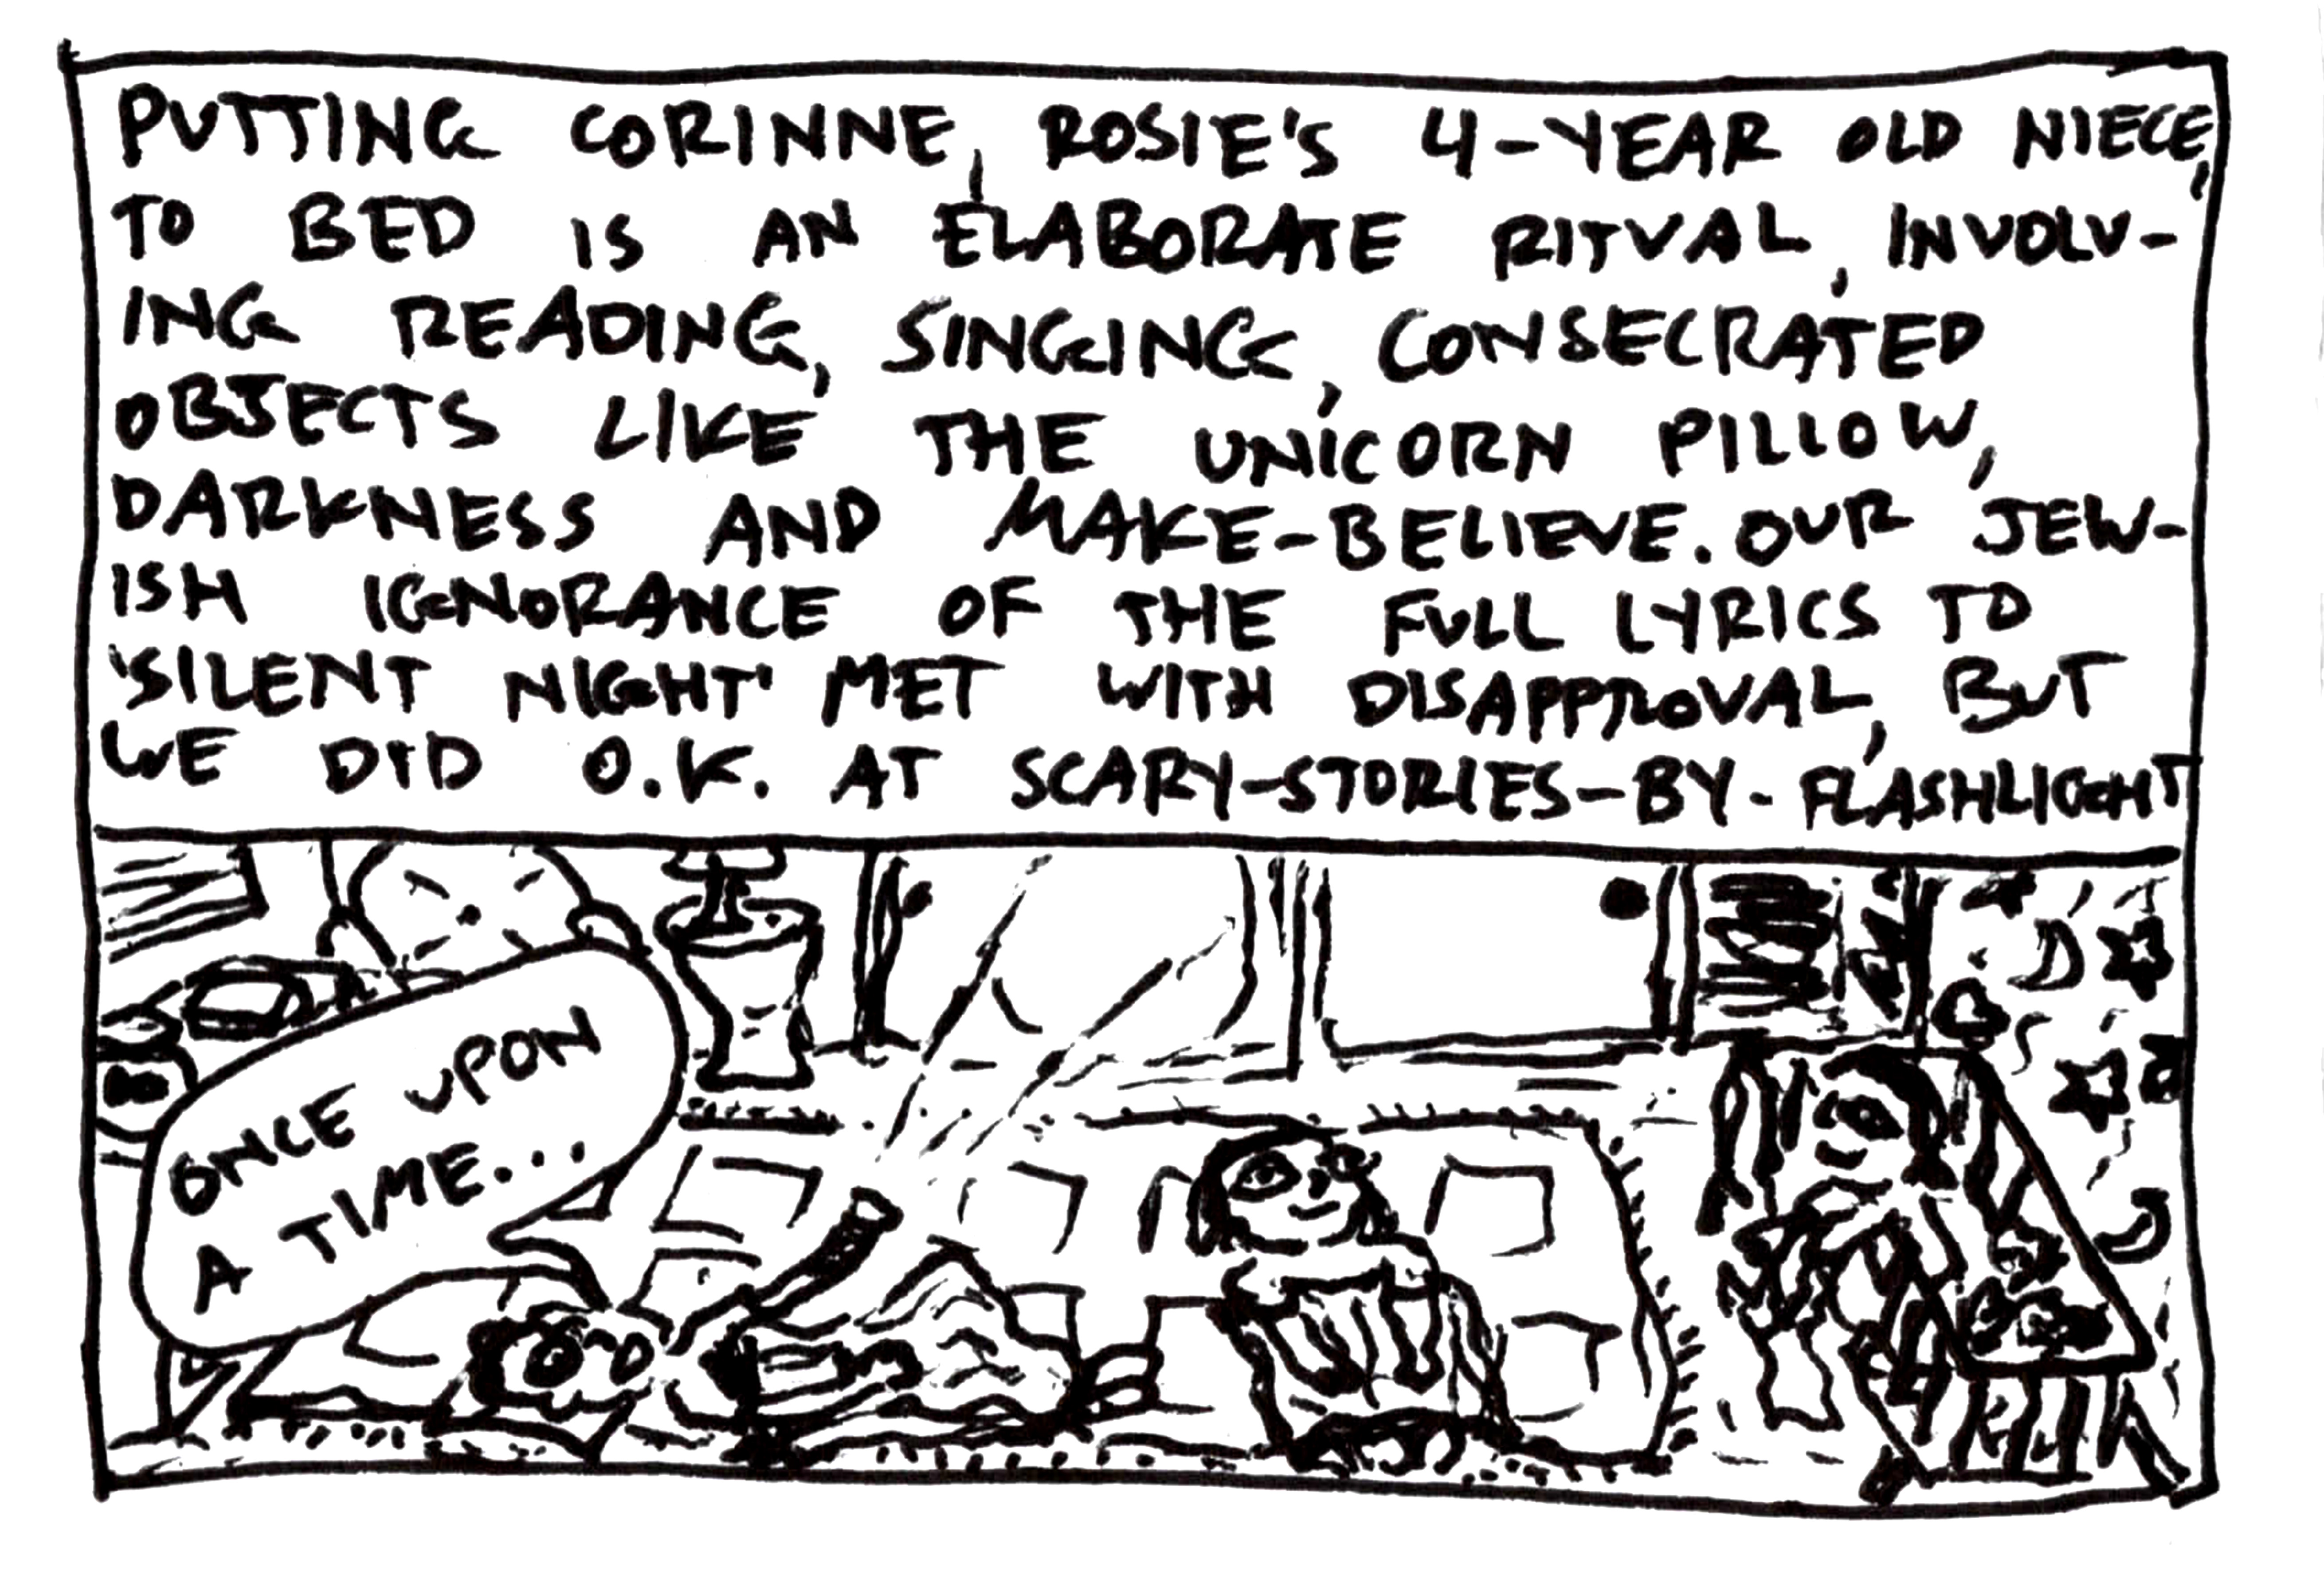 PUTTING CORINNE, ROSIE'S 4-YEAR OLD NIECE,
TO BED IS AN ELABORATE RITUAL, INVOLV-
ING READING, SINGING, CONSECRATED
OBJECTS LIKE THE UNICORN PILLOW,
DARKNESS AND MAKE-BELIEVE. OUR JEW-
ISH IGNORANCE OF THE FULL LYRICS TO
'SILENT NIGHT' MET WITH DISAPPROVAL, BUT
WE DID O.K. AT SCARY-STORIES-BY-FLASHLIGHT
ONCE UPON
A TIME...